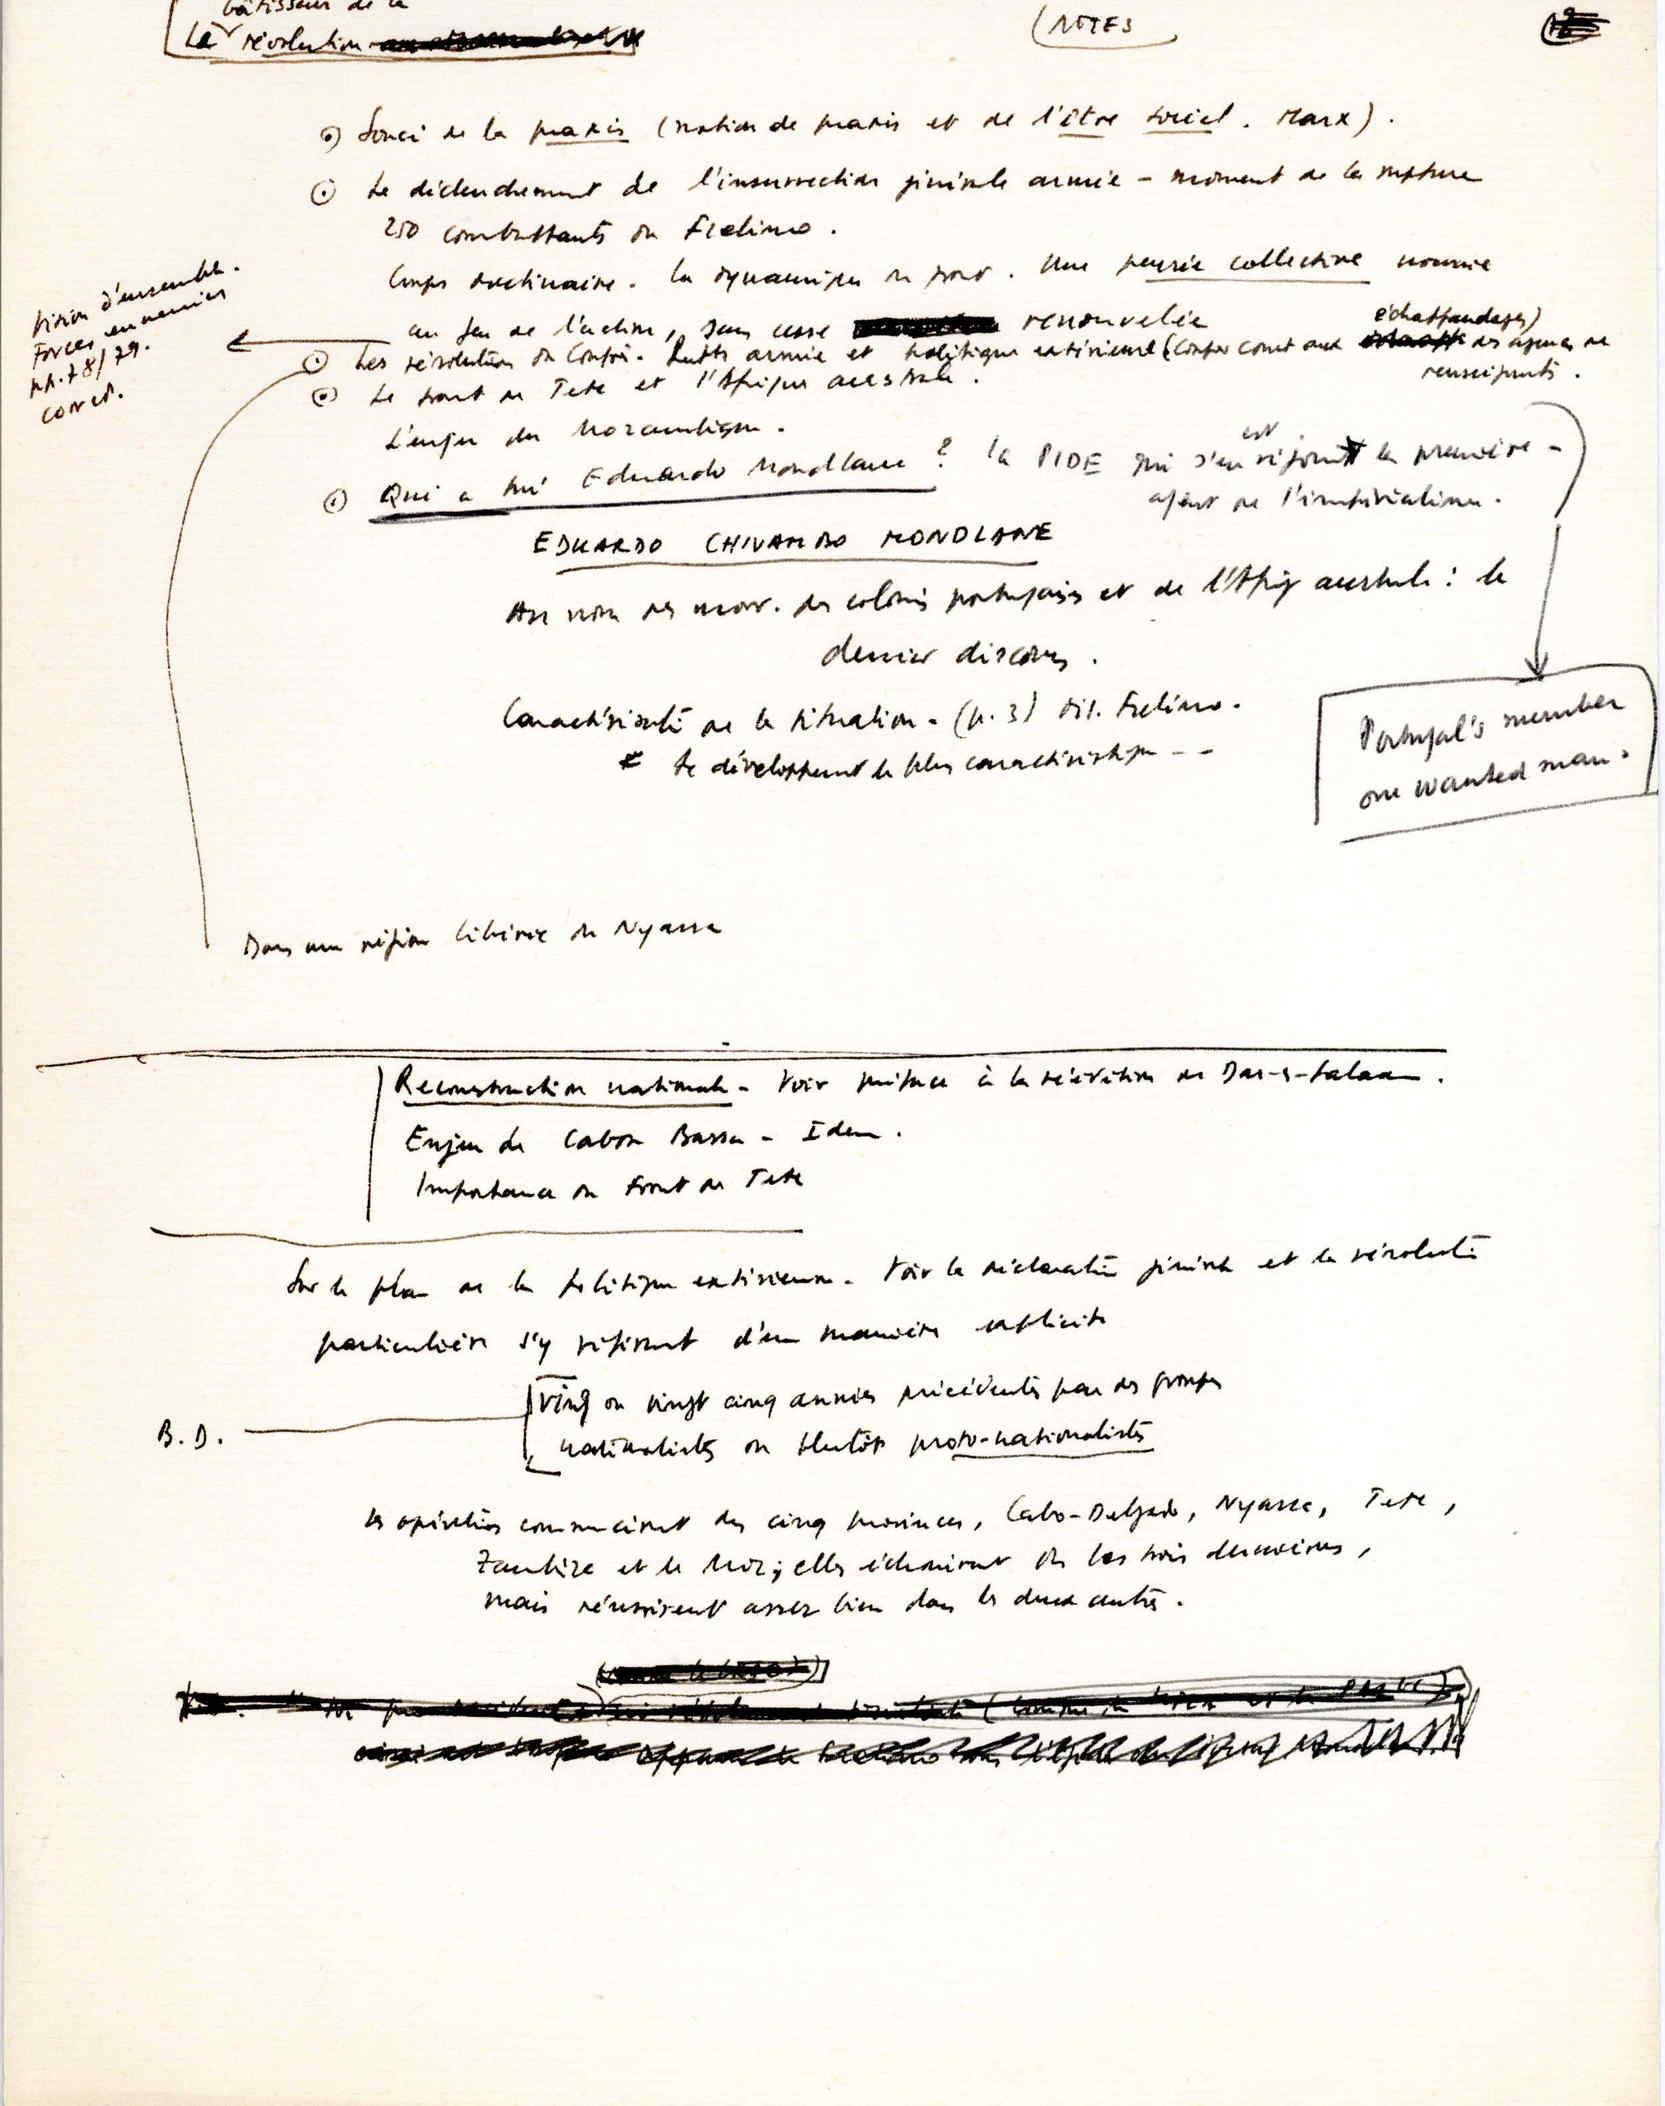 bâtisseur de la
La révolution
(NOTES
Souci de la praxis (notion de praxis et de l'être social. Marx).
Le déclenchement de l'insurrection générale armée - moment de la rupture
250 combattants du Frelimo.
Corps doctrinaire. La dynamique du front. Une pensée collective nourrie
au feu de l'action, sans cesse renouvelée
Vision d'ensemble.
Forces ennemies
pp. 78/79.
Les résolutions du Congrès. Lutte armée et politique extérieure (Couper court aux échaffaudages) des agences de
renseignants.
Le front de Tete et l'Afrique australe.
L'enjeu du Mozambique.
Qui a tué Eduardo Mondlane ? La PIDE qui s'en réjouit est la première -
agent de l'impérialisme.
EDUARDO CHIVAMBO MONDLANE
Au nom des mouv. des colonies portugaises et de l'Afriq australe : le
dernier discours.
Portugal's member
one wanted man.
Caractéristiq de la situation - (p. 3) dis. Frelimo.
Le développement le plus caractéristique - -
Dans une région libérée du Nyassa
Reconstruction nationale - Voir préface à la réédition de Dar-s-Salaam.
Enjeu de Cabora Bassa - Idem.
Importance du Front de Tete
Sur le plan de la politique extérieure. Voir la déclaration générale et la résolution
particulière s'y référant d'une manière explicite
B. D.
vingt ou vingt cinq années précédentes par des groupes
nationalistes ou plutôt proto-nationalistes
Les opérations commencèrent des cinq provinces, Cabo-Delgado, Nyassa, Tete,
Zambèze et le Moz; elles échouèrent ds les trois dernières,
mais réussirent assez bien dans les deux autres.